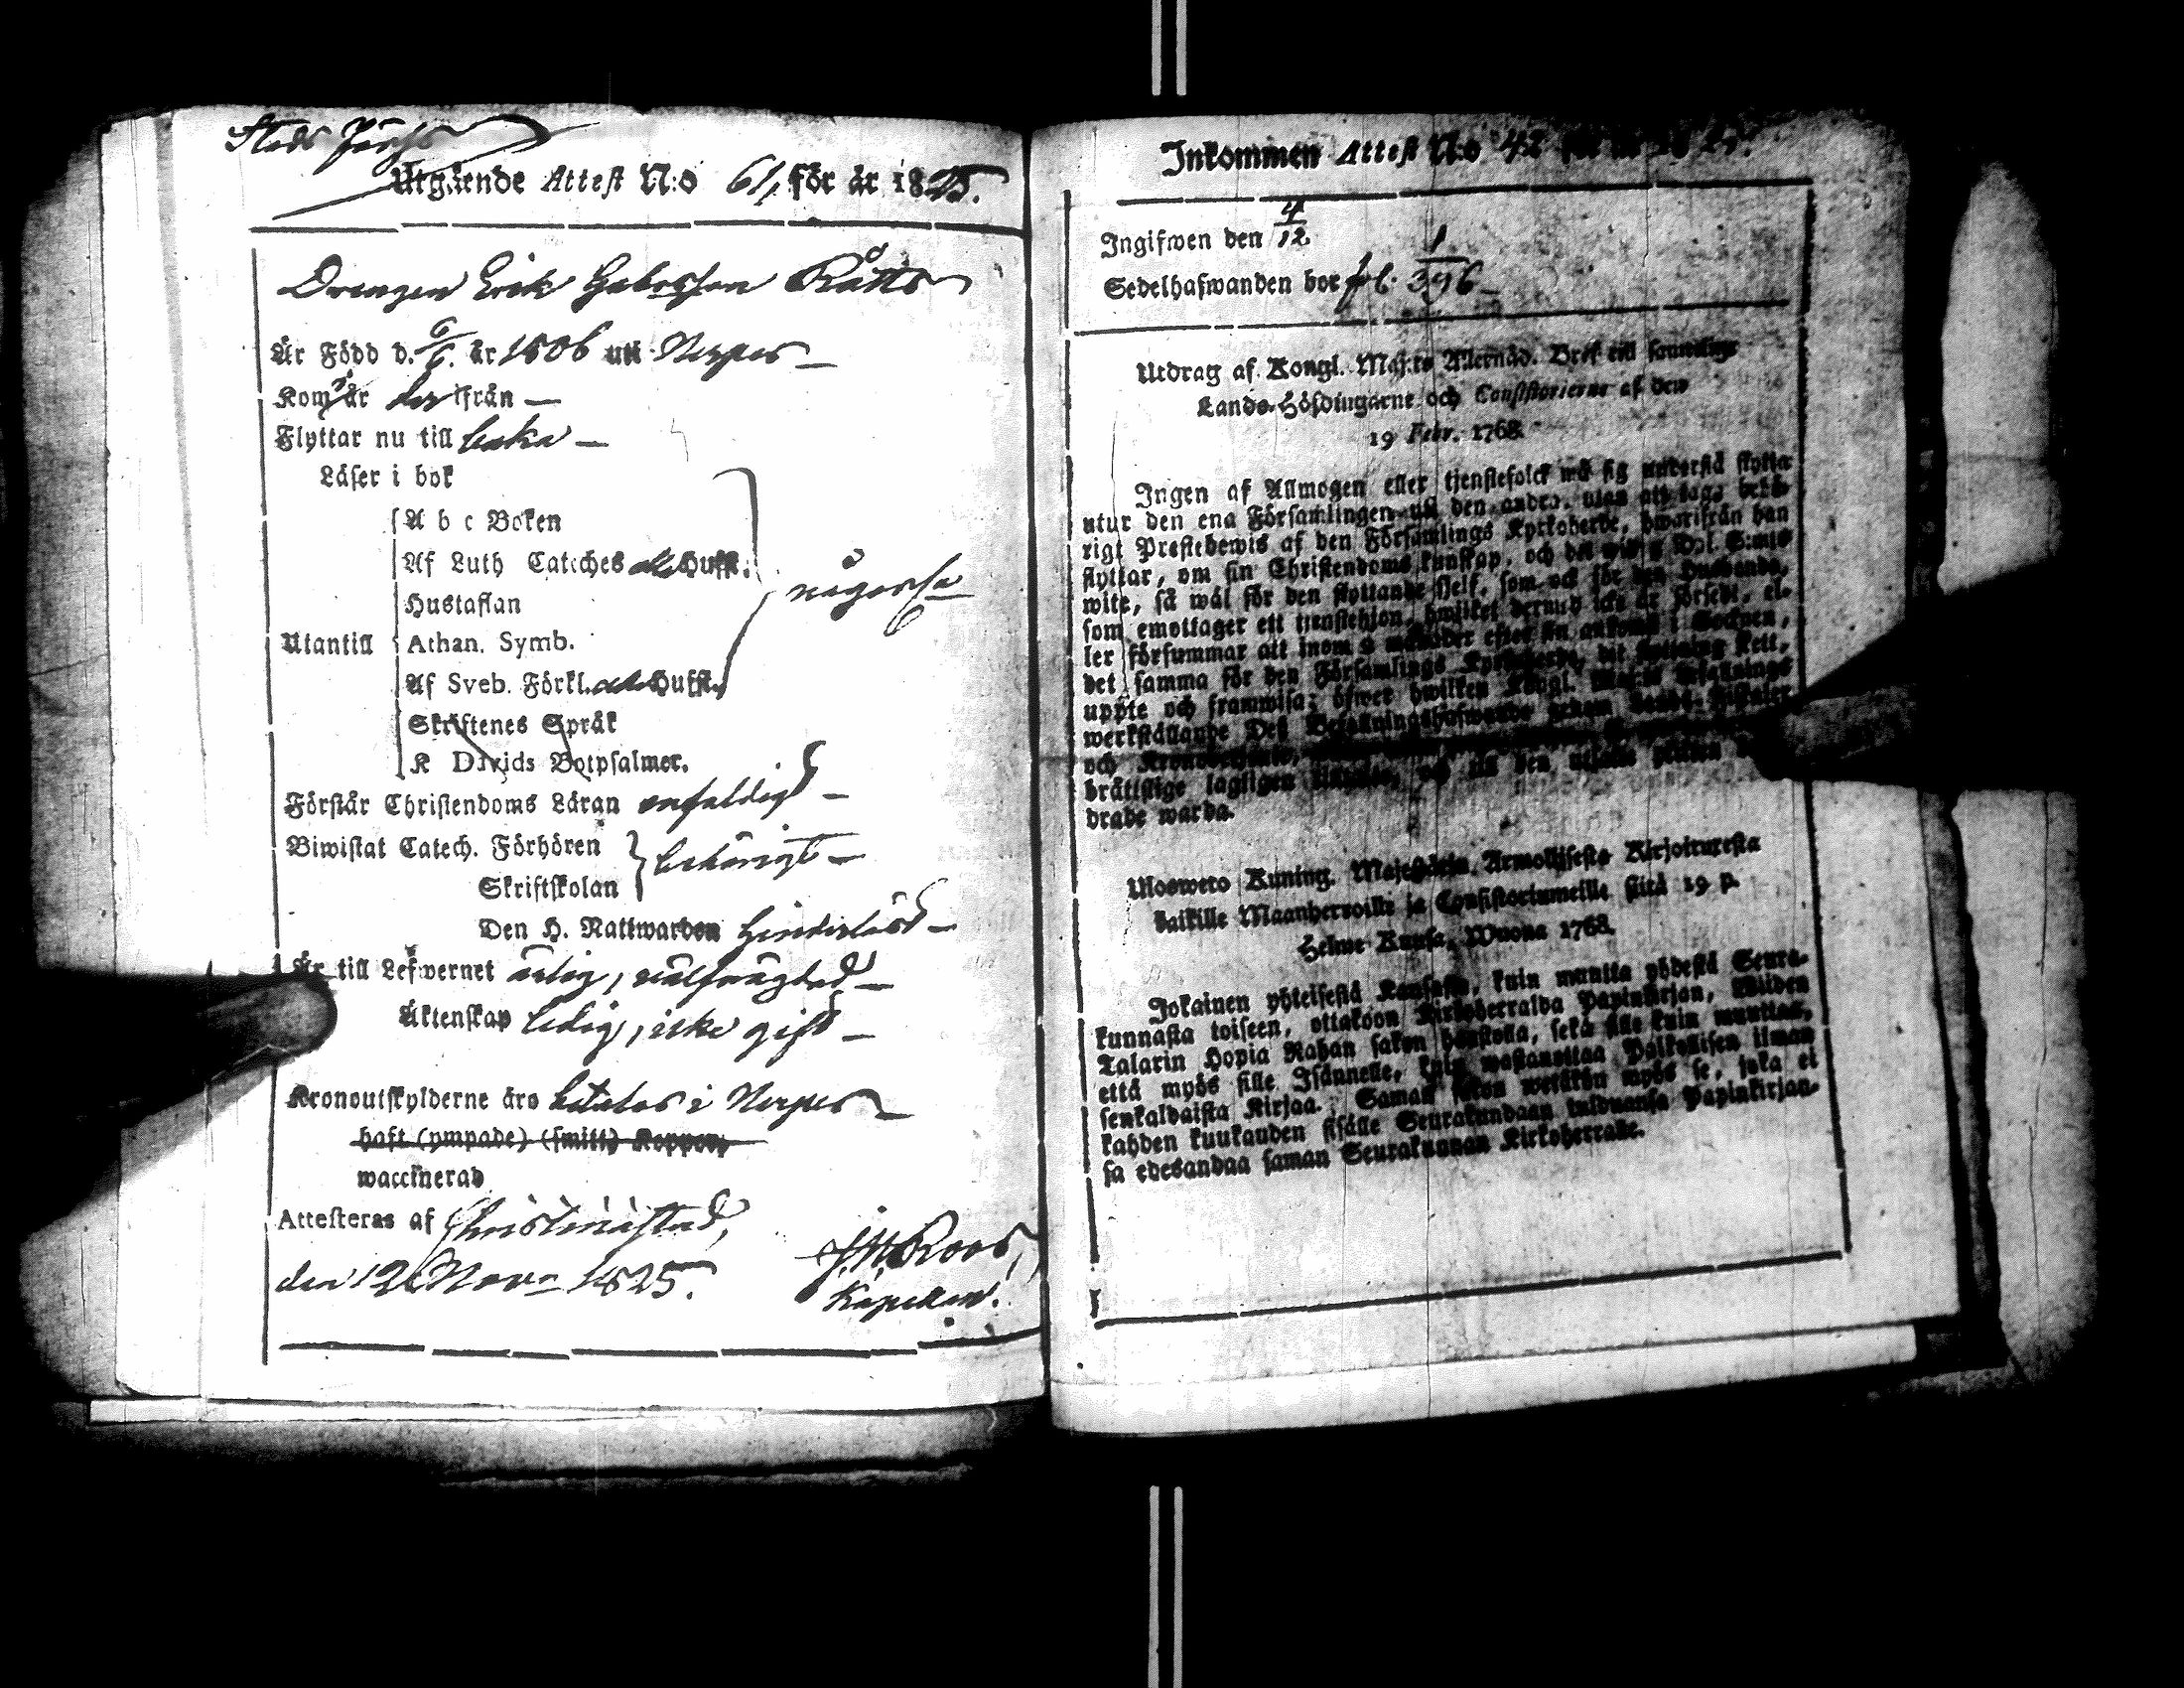 Utgående Attest N:o 61, för år 1825.
Drengen Erik Gabrsson Rått
Är Född d. 6/6. år 1806 uti Nerpes —
Kom år der ifrån —
Flyttar nu till baka —
Läser i bok
A b c Boken
Af Luth Catiches alla Hufst.
någorl.
Hustaflan
Utantill
Athan. Symb.
Af Sveb. Förkl. alla Hufst.
Skriftenes Språk
K Davids Botpsalmer.
Förstår Christendoms Läran enfaldigt —
Biwistat Catech. Förhören
behörigt —
Skriftskolan
Den H. Nattwarden hinderlöst —
Är till Lefwernet ärlig, välfrägdad —
Äktenskap ledig, icke gift —
Kronoutskylderne äro betalas i Nerpes
haft (ympade) (smitt) Koppor,
waccinerad
Attesteras af Christinæstad,
den 12 Nov. 1825.
J. M. Roos
Kapellan.
Inkommen Attest N:o 42 25.
Ingifwen den 4/12
Sedelhafwanden bor fol. 1/396 —
Utdrag af Kongl. Maj:ts Allernåd. Bref till samtelige
Lands-Höfdingarne och Consistorierne af den
19 Febr. 1768.
Ingen af Allmogen eller tjenstefolck må sig understå flytta
utur den ena Församlingen uti den andra, utan att taga behö-
rigt Prestebewis af den Församlings Kyrkoherde, hwarifrån han
flyttar, om sin Christendoms kunskap, och det wid 2 Dal. S:mts
wite, så wäl för den flyttande sjelf, som ock för den Husbonde,
som emottager ett tjenstehjon, hwilket dermed icke är försedt, el-
ler försummar att inom 2 månader efter sin ankomst i Socknen,
det samma för den Församlings Kyrkoherde, dit flyttning skett,
uppte och framwisa; öfwer hwilken Kongl. Maj:ts befallnings
werkställande Deß Befallningshafwande genom Lands-Fiskaler
och
brättslige lagligen
drade warda.
Ulosweto Kuning. Majestätin Armollisesta Kirjoituresta
kaikille Maanherroille ja Consistoriumeille siitä 19 p.
Helme-Kuusa, Wuona 1768.
Jokainen yhteisestä Kansasta, kuin muutta yhdestä Seura-
kunnasta toiseen, ottakoon Kirkoherralda Papinkirjan, Wiiden
Talarin Hopia Rahan sakon haastolla, sekä sille kuin muuttaa,
että myös sille Isännelle, kuin wastanottaa Palkollisen ilman
senkaldaista Kirjaa. Saman sakon wetäkön myös se, joka ei
kahden kuukauden sisälle Seurakundaan tulduansa Papinkirjan-
sa edesandaa saman Seurakunnan Kirkoherralle.